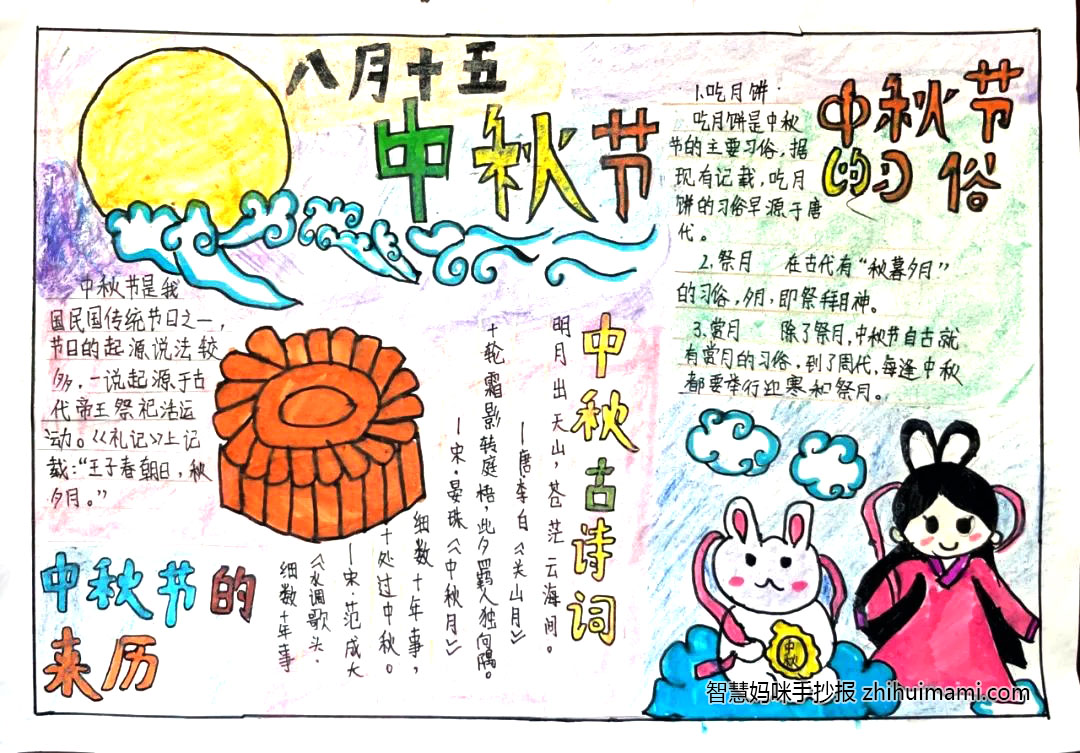 八月十五
中秋节
中秋节是我
国民国传统节日之一，
节日的起源说法较
多，一说起源于古
代帝王祭祀活运
动。《礼记》上记
载：“王子春朝日，秋
夕月。”
中秋节的
来历
中秋古诗词
明月出天山，苍茫云海间。
—唐·李白《关山月》
十轮霜影转庭梧，此夕羁人独向隅。
—宋·晏珠《中秋月》
细数十年事，
十处过中秋。
—宋·范成大
《水调歌头·
细数十年事
中秋节
的习俗
1.吃月饼·
吃月饼是中秋
节的主要习俗，据
现有记载，吃月
饼的习俗早源于唐
代。
2.祭月 在古代有“秋暮夕月”
的习俗，夕月，即祭拜月神。
3.赏月 除了祭月，中秋节自古就
有赏月的习俗，到了周代，每逢中秋
都要举行迎寒和祭月。
中秋
智慧妈咪手抄报 zhihuimami.com